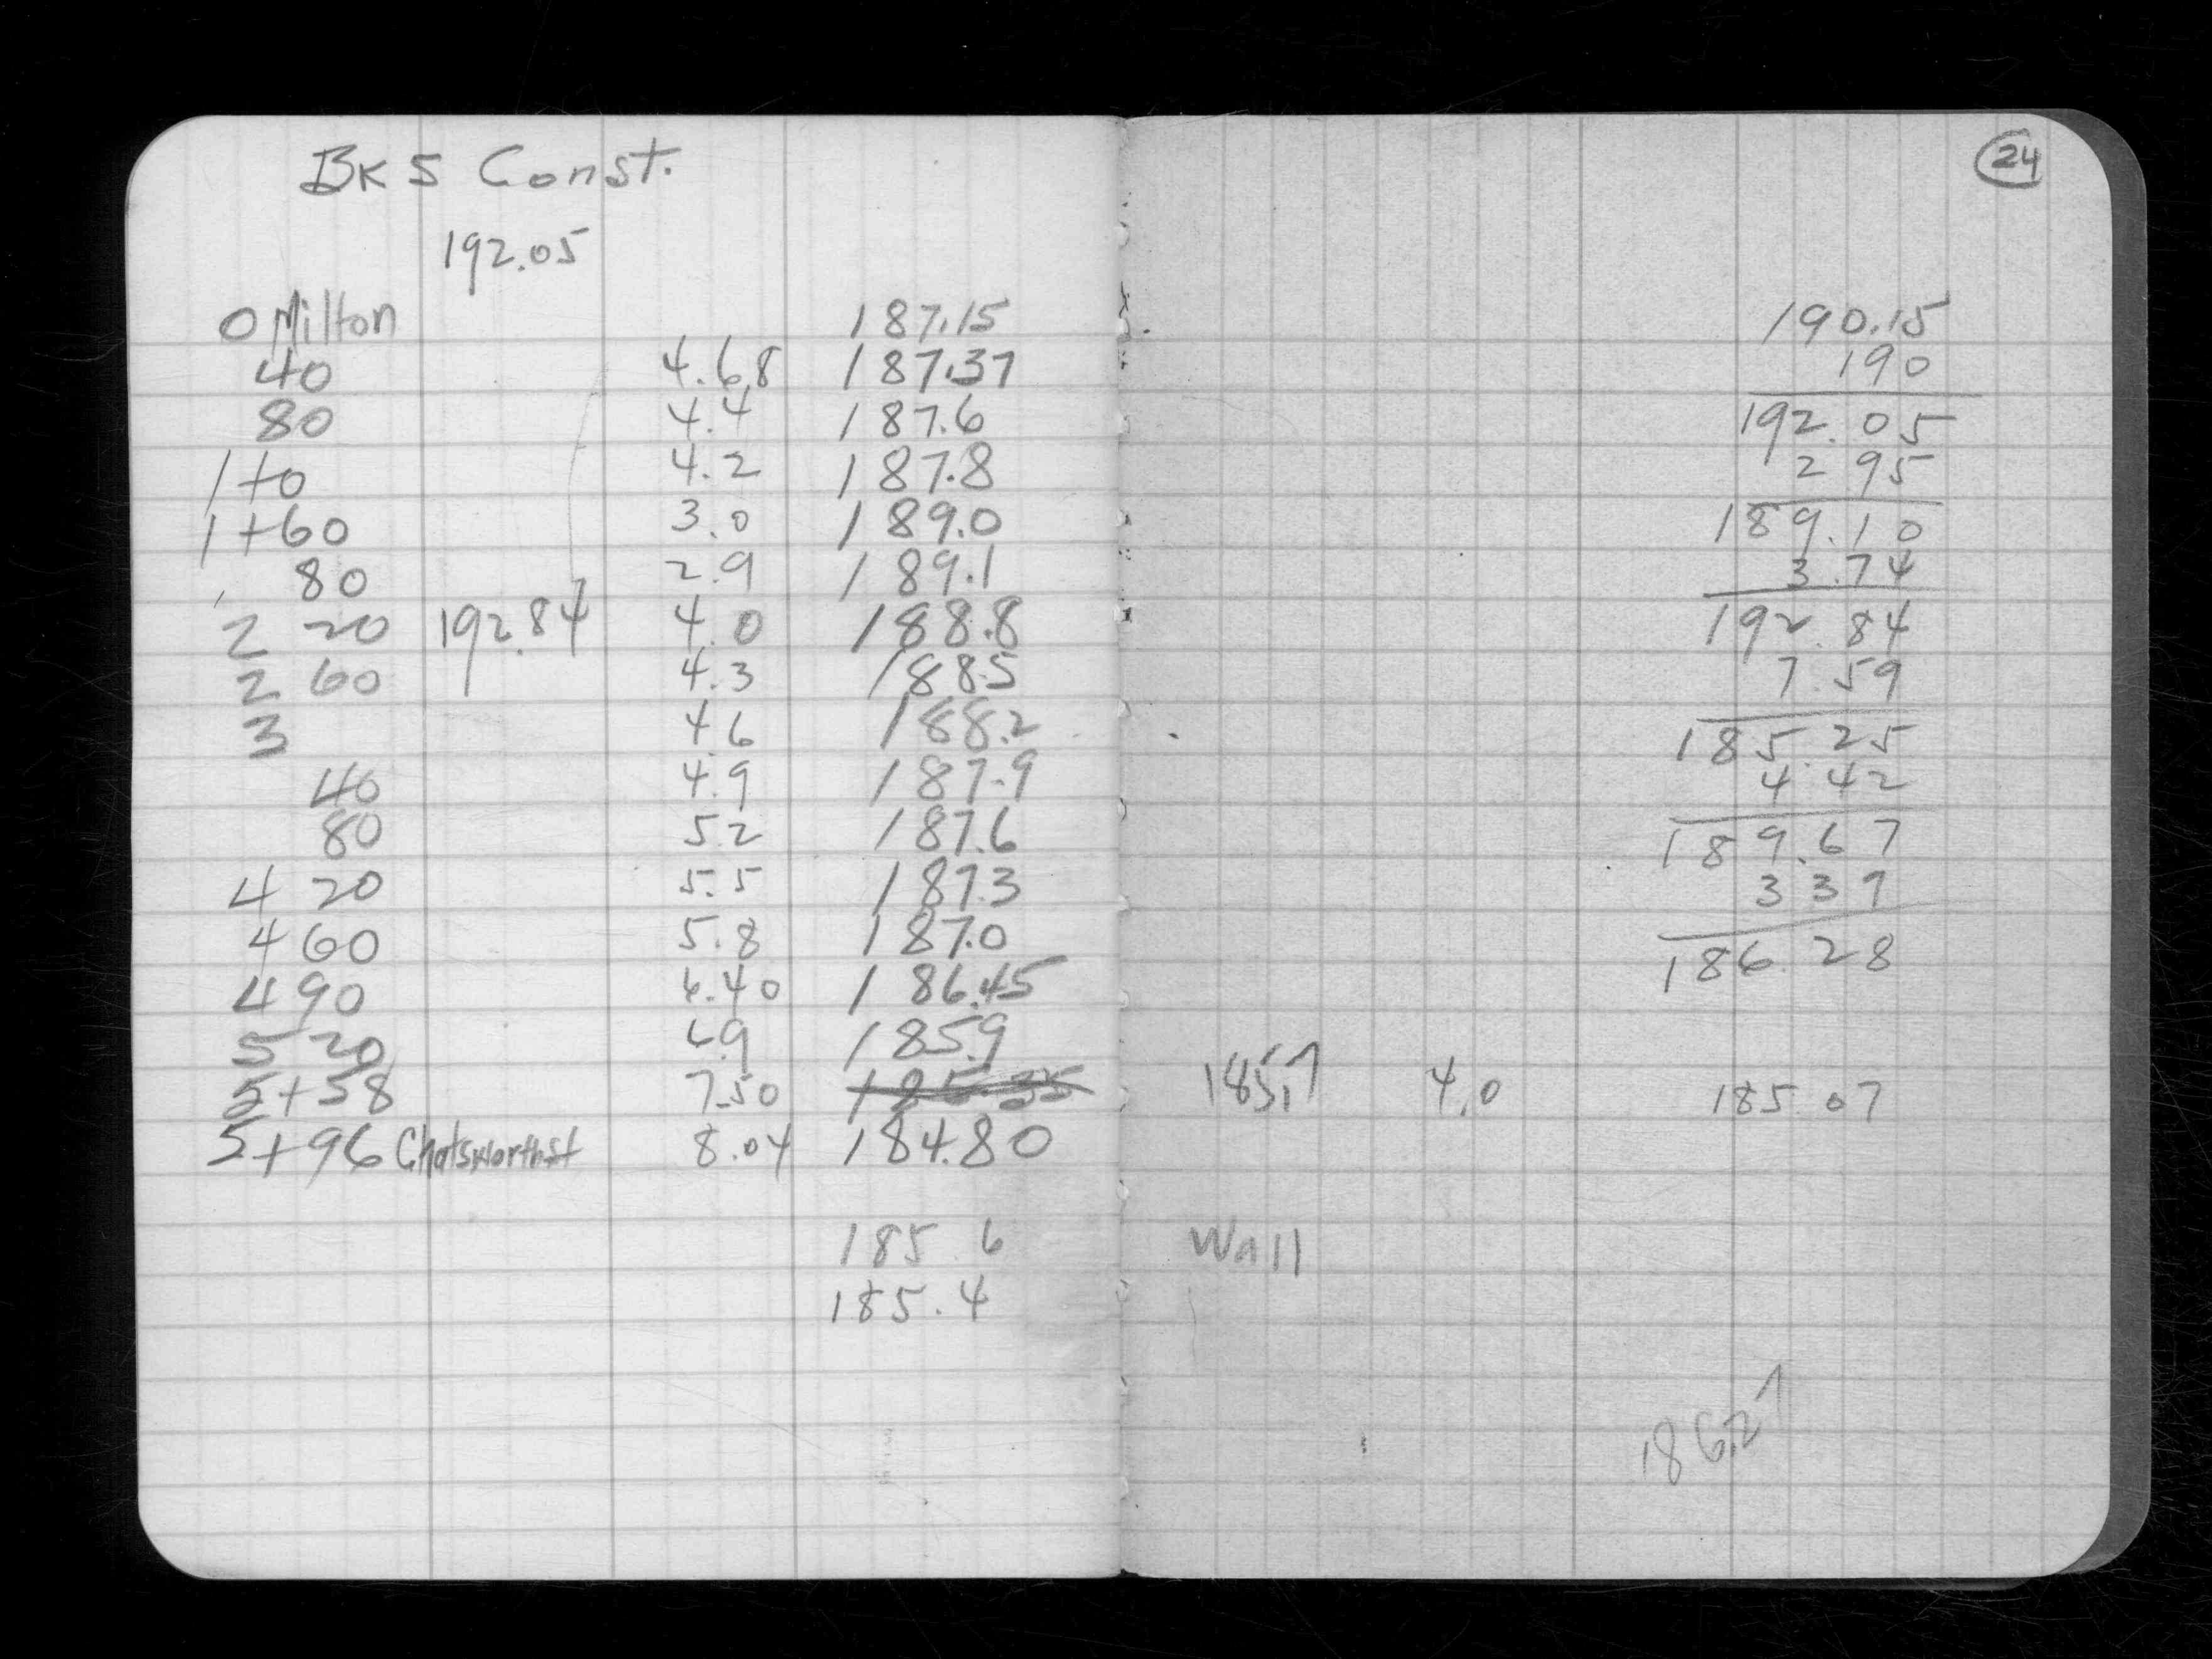 BK 5 Const.
192.05
0 Milton 187.15
40 4.68 187.37
80 4.4 187.6
1+0 4.2 187.8
1+60 3.0 189.0
80 2.9 189.1
2 20 192.84 4.0 188.8
2 60 4.3 188.5
3 4.6 188.2
40 4.9 187.9
80 5.2 187.6
4 20 5.5 187.3
4 60 5.8 187.0
4 90 6.40 186.45
5 20 6.9 185.9
5+58 7.50
5+96 Chatsworth st 8.04 184.80
185 6
185.4
24
190.15
190
192.05
2 95
189.10
3.74
192.84
7.59
185.25
4.42
189.67
3 39
186.28
185.7 4.0 185 07
Wall
186.27